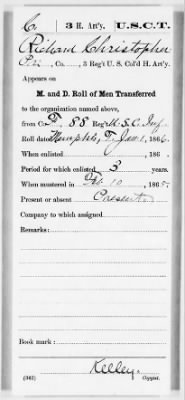 C. | 3 H. Art'y. | U.S.C.T.
Richard Christopher
Pvt, Co. , 3 Reg't U. S. Col'd H. Art'y.
Appears on
M. and D. Roll of Men Transferred
to the organization named above,
from Co. F. 88 Reg't U.S.C. Inf
Roll dated Memphis, T, Jan 1, 1866
When enlisted , 186 .
Period for which enlisted 3 years.
When mustered in Feb 10, 1865.
Present or absent Present
Company to which assigned
Remarks:
Book mark:
Kelley.
(362) Copyist.